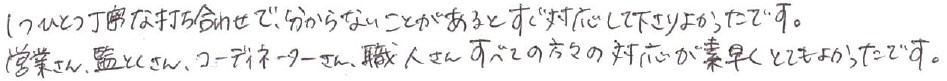 1つひとつ丁寧な打ち合わせで、分からないことがあるとすぐ対応して下さりよかったです。
営業さん、監とくさん、コーディネーターさん、職人さんすべての方々の対応が素早くとてもよかったです。